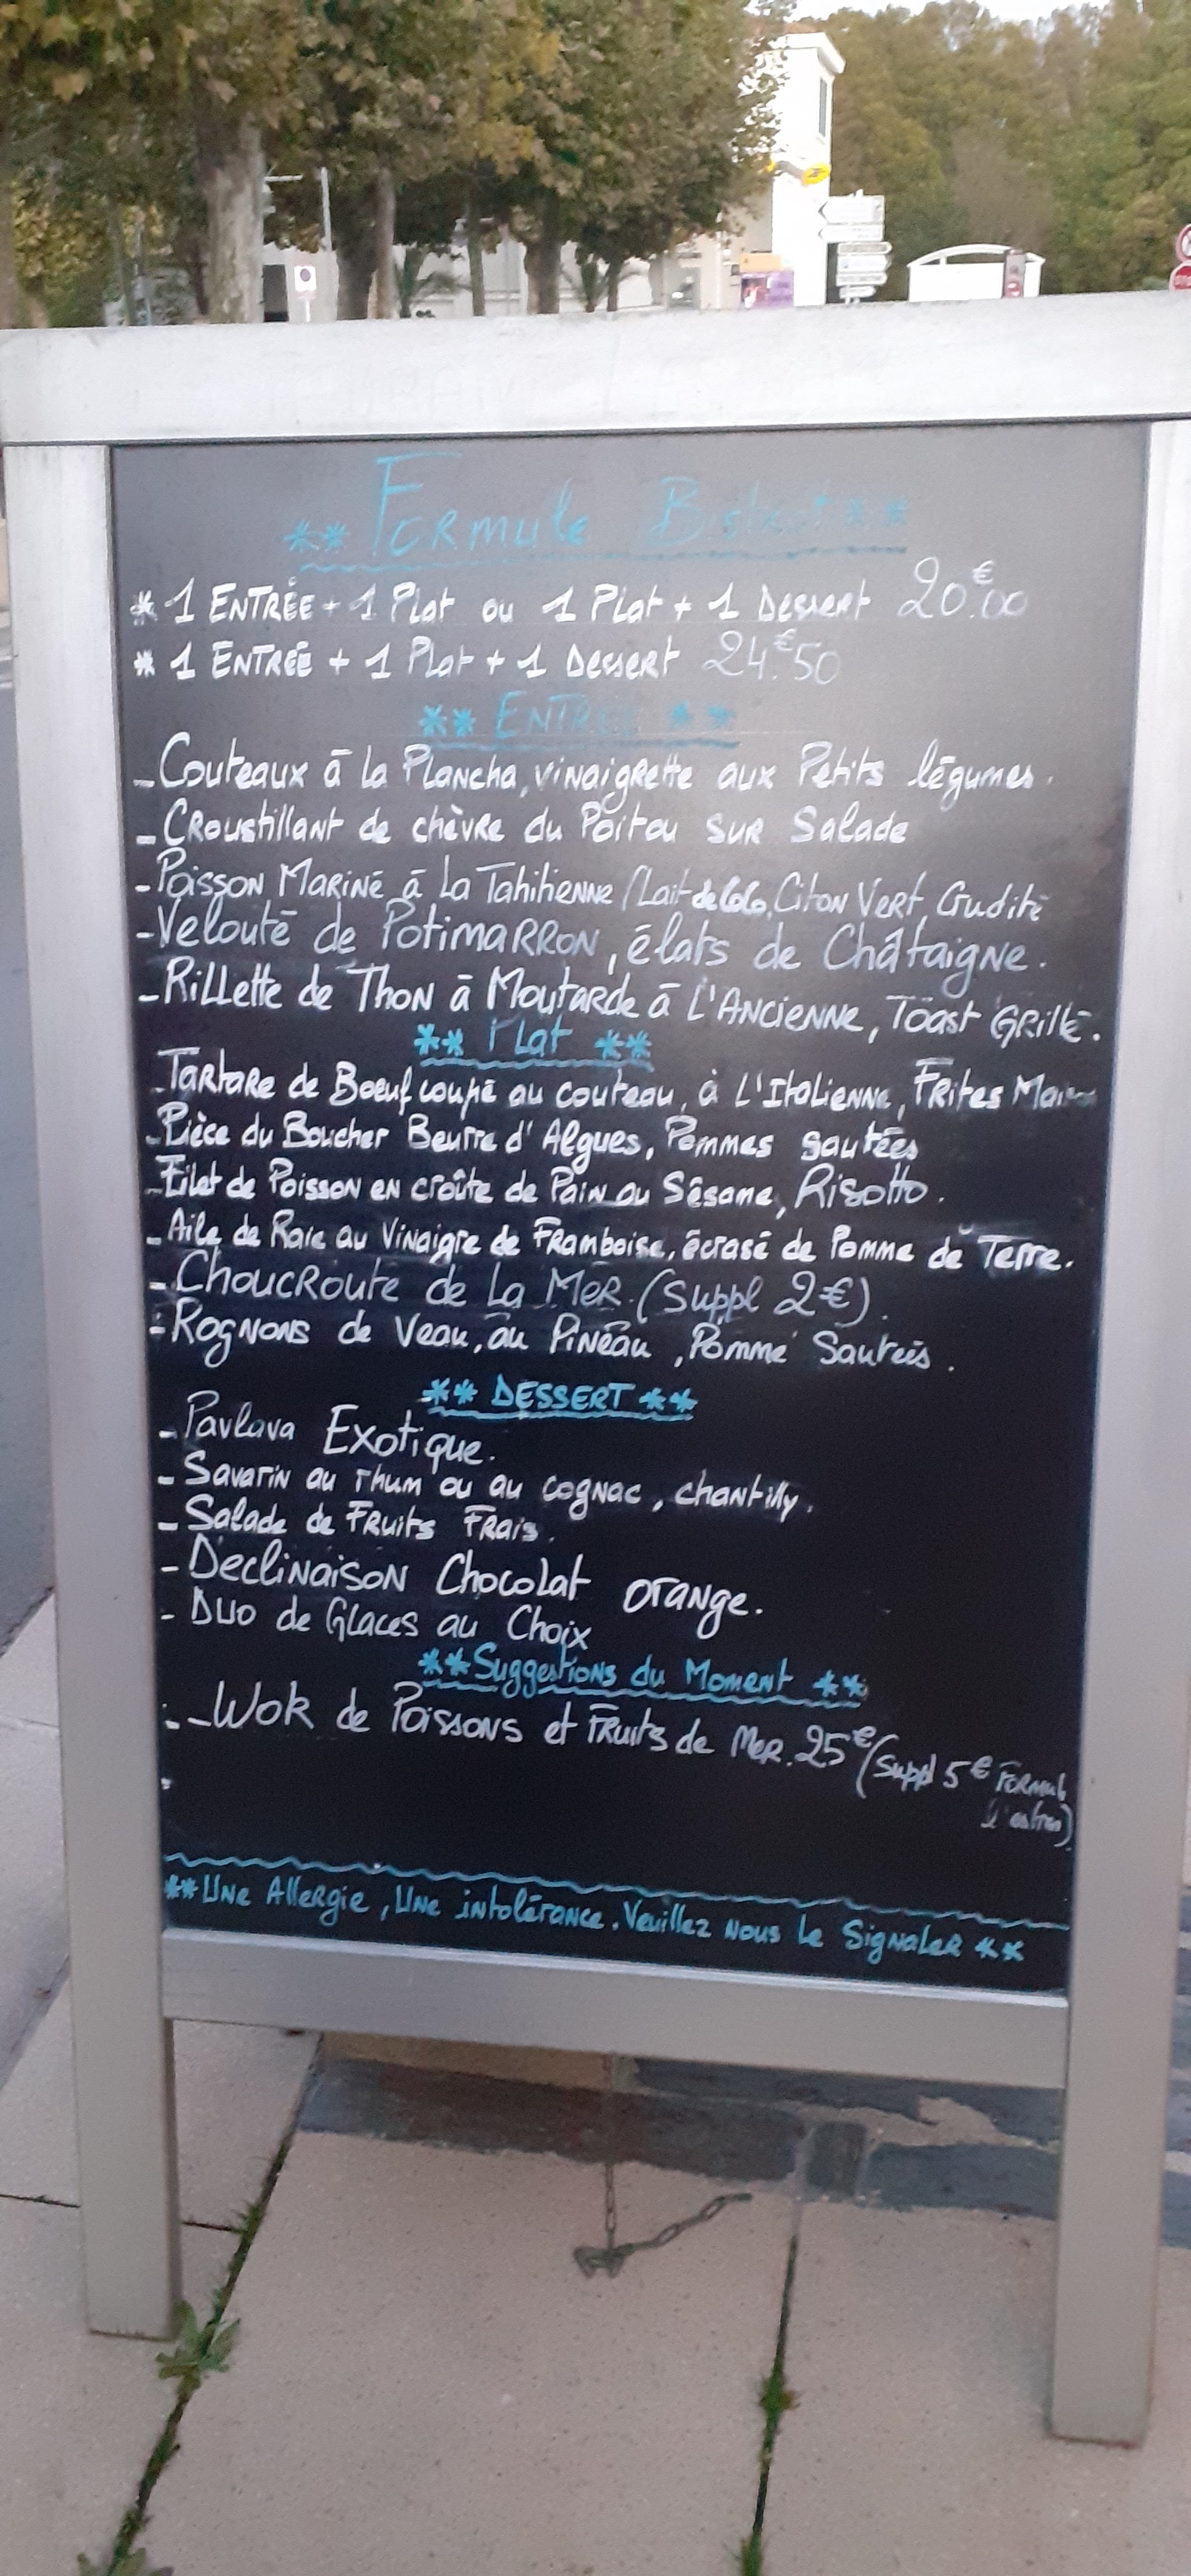 ** Formule Bistrot **
* 1 ENTRÉE + 1 Plat ou 1 Plat + 1 Dessert 20.€00
* 1 ENTRÉE + 1 Plat + 1 Dessert 24.€50
** ENTRÉE **
- Couteaux à la Plancha, vinaigrette aux Petits légumes.
- Croustillant de chèvre du Poitou sur Salade
- Poisson Mariné à La Tahitienne (Lait de Coco, Citon Vert, Crudité
- Velouté de Potimarron, élats de Châtaigne.
- Rillette de Thon à Moutarde à L'Ancienne, Toast Grillé.
** Plat **
- Tartare de Boeuf coupé au couteau, à L'Italienne, Frites
- Pièce du Boucher Beurre d'Algues, Pommes sautées
- Filet de Poisson en croûte de Pain au Sésame, Risotto.
- Aile de Raie au Vinaigre de Framboise, écrasé de Pomme de Terre.
- Choucroute de La Mer. (Suppl 2€).
- Rognons de Veau, au Pineau, Pomme Sautées.
** DESSERT **
- Pavlova Exotique.
- Savarin au rhum ou au cognac, chantilly.
- Salade de Fruits Frais.
- Declinaison Chocolat orange.
- Duo de Glaces au Choix
** Suggestions du Moment **
- Wok de Poissons et Fruits de Mer. 25€ (Suppl 5€ Formule
** Une Allergie, Une intolérance. Veuillez Nous Le Signaler **